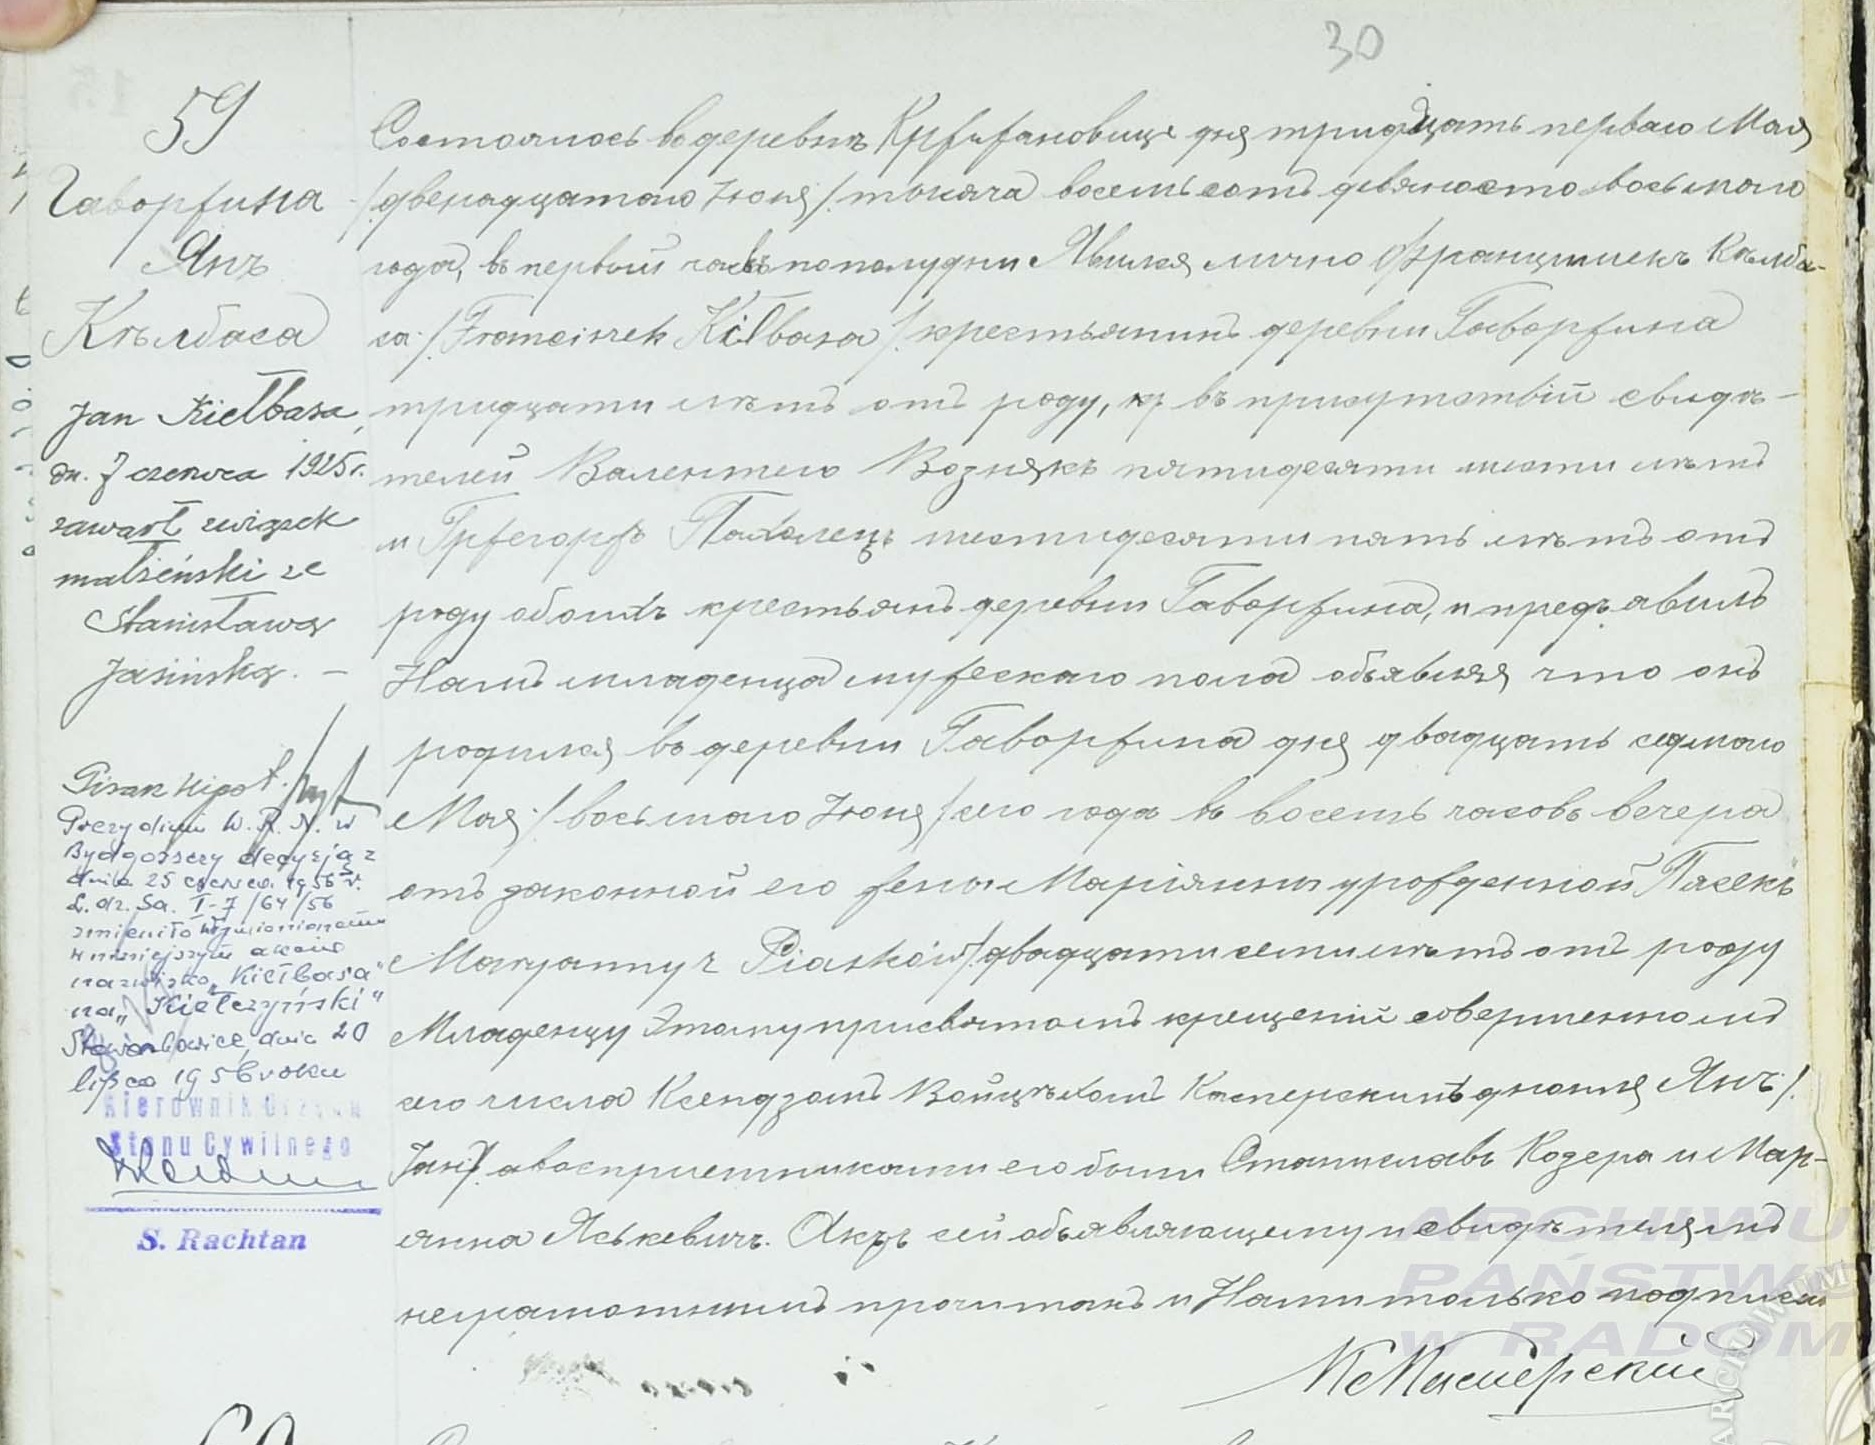 30
59
Гаворжина
Янъ
Кѣлбаса
Jan Kiełbasa,
dn. 7 czerwca 1925 r.
zawarł związek
małżeński ze
Stanisławą
Jasińską. —
Prezydium W. R. N. w
Bydgoszczy decyzją z
dnia 25 czerwca 1956 r.
L. dz. Sa. I-7/64/56
zmieniło wymienionemu
w niniejszym akcie
nazwisko „Kiełbasa"
na „Kiełczyński"
dnia 20
lipca 1956 roku
Kierownik Urzędu
Stanu Cywilnego
S. Rachtan
Состоялось въ деревнѣ Кржижановице дня тридцать перваго Мая
/двенадцатаго Іюня/ тысяча восемьсотъ девяносто восьмаго
года, въ первый часъ пополудни Явился лично Францишекъ Кѣлба-
са /Franciszek Kiłbasa/ крестьянинъ деревни Гаворжина
тридцати лѣтъ отъ роду, въ присутствіи свидѣ-
телей Валентего Вознякъ пятидесяти шести лѣтъ
и Гржегоржъ Пахолецъ шестидесяти пять лѣтъ отъ
роду обоихъ крестьянъ деревни Гаворжина, и предъявилъ
Намъ младенца мужескаго пола объявляя что онъ
родился въ деревни Гаворжина дня двадцать седмаго
Мая /восьмаго Іюня/ сего года въ восемь часовъ вечера
отъ законной его жены Маріянны урожденной Пясекъ
Maryanny z Piasków/ двадцати семи лѣтъ отъ роду
Младенцу этому при святомъ крещеніи совершенномъ
сего числа Ксендзомъ Войцѣхомъ Касперскимъ дано имя Янъ /
Jan/ а воспріемниками его были Станиславъ Козера и Мар-
янна Яськевичъ. Актъ сей объявляющему и свидѣтелямъ
неграмотнымъ прочитанъ и Нами только подписанъ
Кс Касперский
ARCHIWUM
PAŃSTW
W RADOM